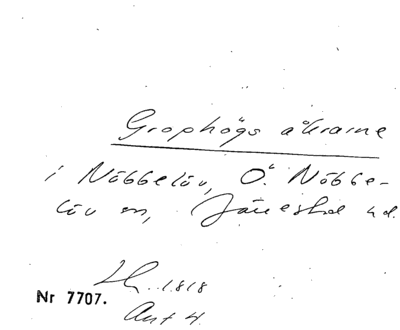 Grophögs åkrarne
i Nöbbelöv, Ö. Nöbbe-
löv sn, Järrestad hd.
Lh. 1818
Nr 7707.
Akt 4